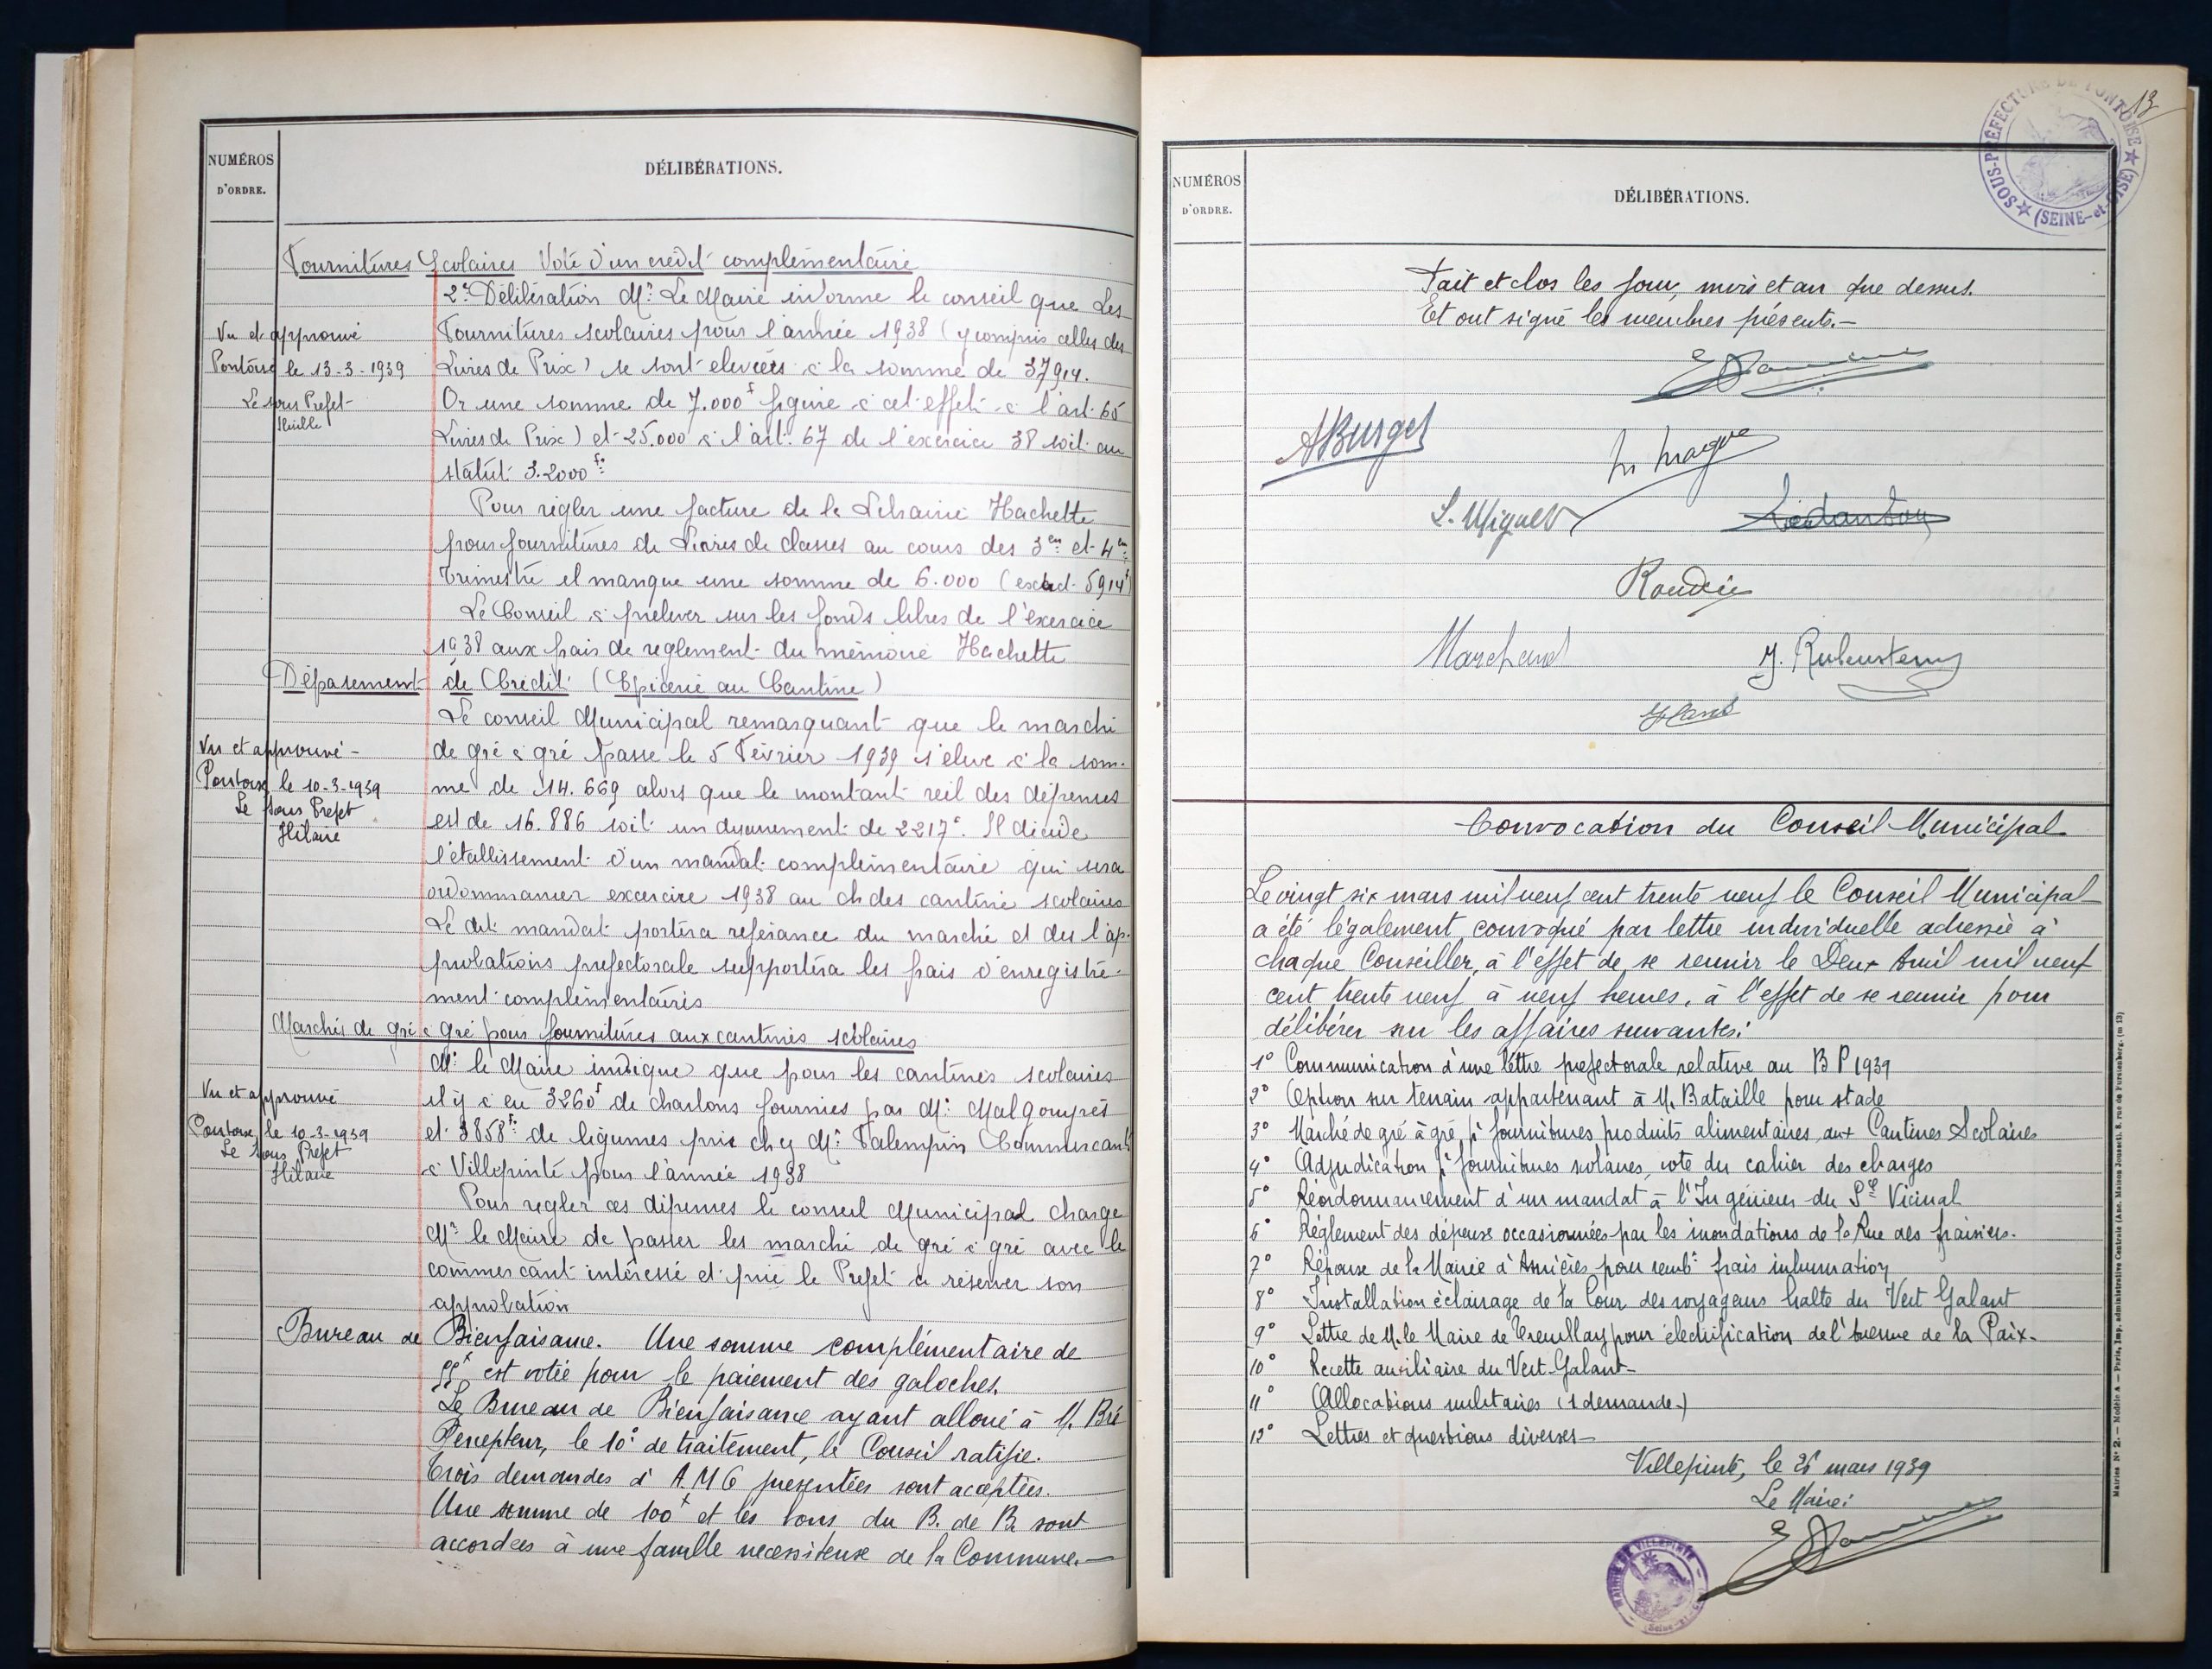 NUMÉROS
D'ORDRE.
DÉLIBÉRATIONS.
Fournitures Scolaires Vote d'un crédit complémentaire
2e Délibération Mr Le Maire informe le conseil que Les
Fournitures scolaires pour l'année 1938 (y compris celles des
Livres de Prix) se sont elevées à la somme de 37914.
Or une somme de 7.000f figure à cet effet à l'art. 65
Livres de Prix) et 25.000 à l'art. 67 de l'exercice 38 soit au
statut 3.2000 fs
Vu et approuvé
Pontoise le 13-3-1939
Le sous Prefet
Pour régler une facture de la Librairie Hachette
pour fournitures de Livres de classes au cours des 3em et 4em
Trimestre il manque une somme de 6.000 (exact. 5914f)
Le Conseil à prélever sur les fonds libres de l'exercice
1938 aux frais de reglement du mémoire Hachette
Dépasement de Crédit (Epicerie au Cantine)
Le conseil Municipal remarquant que le marché
de gré à gré passe le 5 Février 1939 s'élève à la som-
me de 14.669 alors que le montant réel des dépenses
est de 16.886 soit un de 2217f. Il décide
l'établissement d'un mandat complémentaire qui sera
ordonnancer excercice 1938 au ch des cantine scolaires
Le dit mandat portera referance du marché et du l'ap-
probations prefectorale supportera les frais d'enregistre-
ment complémentaires
Vu et approuvé -
Pontoise, le 10-3-1939
Le Sous Prefet
Hilaire
Marchés de gré à gré pour fournitures aux cantines scolaires
Mr le Maire indique que pour les cantines scolaires
il y a eu 3265f de charbons fournies par Mr Malgouyrés
et 3858f de légumes pris chez Mr Valempin Commercant
à Villepinte pour l'année 1938
Pour regler ces dépenses le conseil Municipal charge
Mr le Maire de passer les marché de gré à gré avec le
commercant intéressé et prie le Prefet a réserver son
approbation
Vu et approuvé
Pontoise, le 10-3-1939
Le Sous Prefet
Hilaire
Bureau de Bienfaisance. Une somme complémentaire de
55f est votée pour le paiement des galoches.
Le Bureau de Bienfaisance ayant alloué à M. Bré
Percepteur, le 10e de traitement, le Conseil ratifie.
Trois demandes d'A.M.G présentées sont acceptées.
Une somme de 100f et les bons du B. de B. sont
accordées à une famille necessiteuse de la Commune.—
13
SOUS-PRÉFECTURE DE PONTOISE
(SEINE-et-OISE)
NUMÉROS
D'ORDRE.
DÉLIBÉRATIONS.
Fait et clos les jour, mois et an que dessus.
Et ont signé les membres présents.—
A Burgel
L. Miquel
Roudié
Marchand
Convocation du Conseil Municipal
Le vingt six mars mil neuf cent trente neuf le Conseil Municipal
a été légalement convoqué par lettre individuelle adressée à
chaque Conseiller, à l'effet de se reunir le Deux Avril mil neuf
cent trente neuf à neuf heures, à l'effet de se reunir pour
délibérer sur les affaires suivantes:
1° Communication d'une lettre préfectorale relative au B P 1939
2° Option sur terrain appartenant à M. Bataille pour stade
3° Marché de gré à gré pr fournitures produits alimentaires aux Cantines Scolaires
4° Adjudication pr fournitures scolaires, vote du cahier des charges
5° Réordonnancement d'un mandat à l'Ingénieur du Sce Vicinal
6° Réglement des dépenses occasionnées par les inondations de la Rue des fraisiers.
7° Réponse de la Mairie d'Asnières pour rembt frais inhumation
8° Installation éclairage de la Cour des voyageurs halte du Vert Galant
9° Lettre de M. le Maire de Tremblay pour électrification de l'Avenue de la Paix.
10° Recette auxiliaire du Vert-Galant
11° Allocations militaires (1 demande.)
12° Lettres et questions diverses
Villepinte, le 26 mars 1939
Le Maire:
MAIRIE DE VILLEPINTE